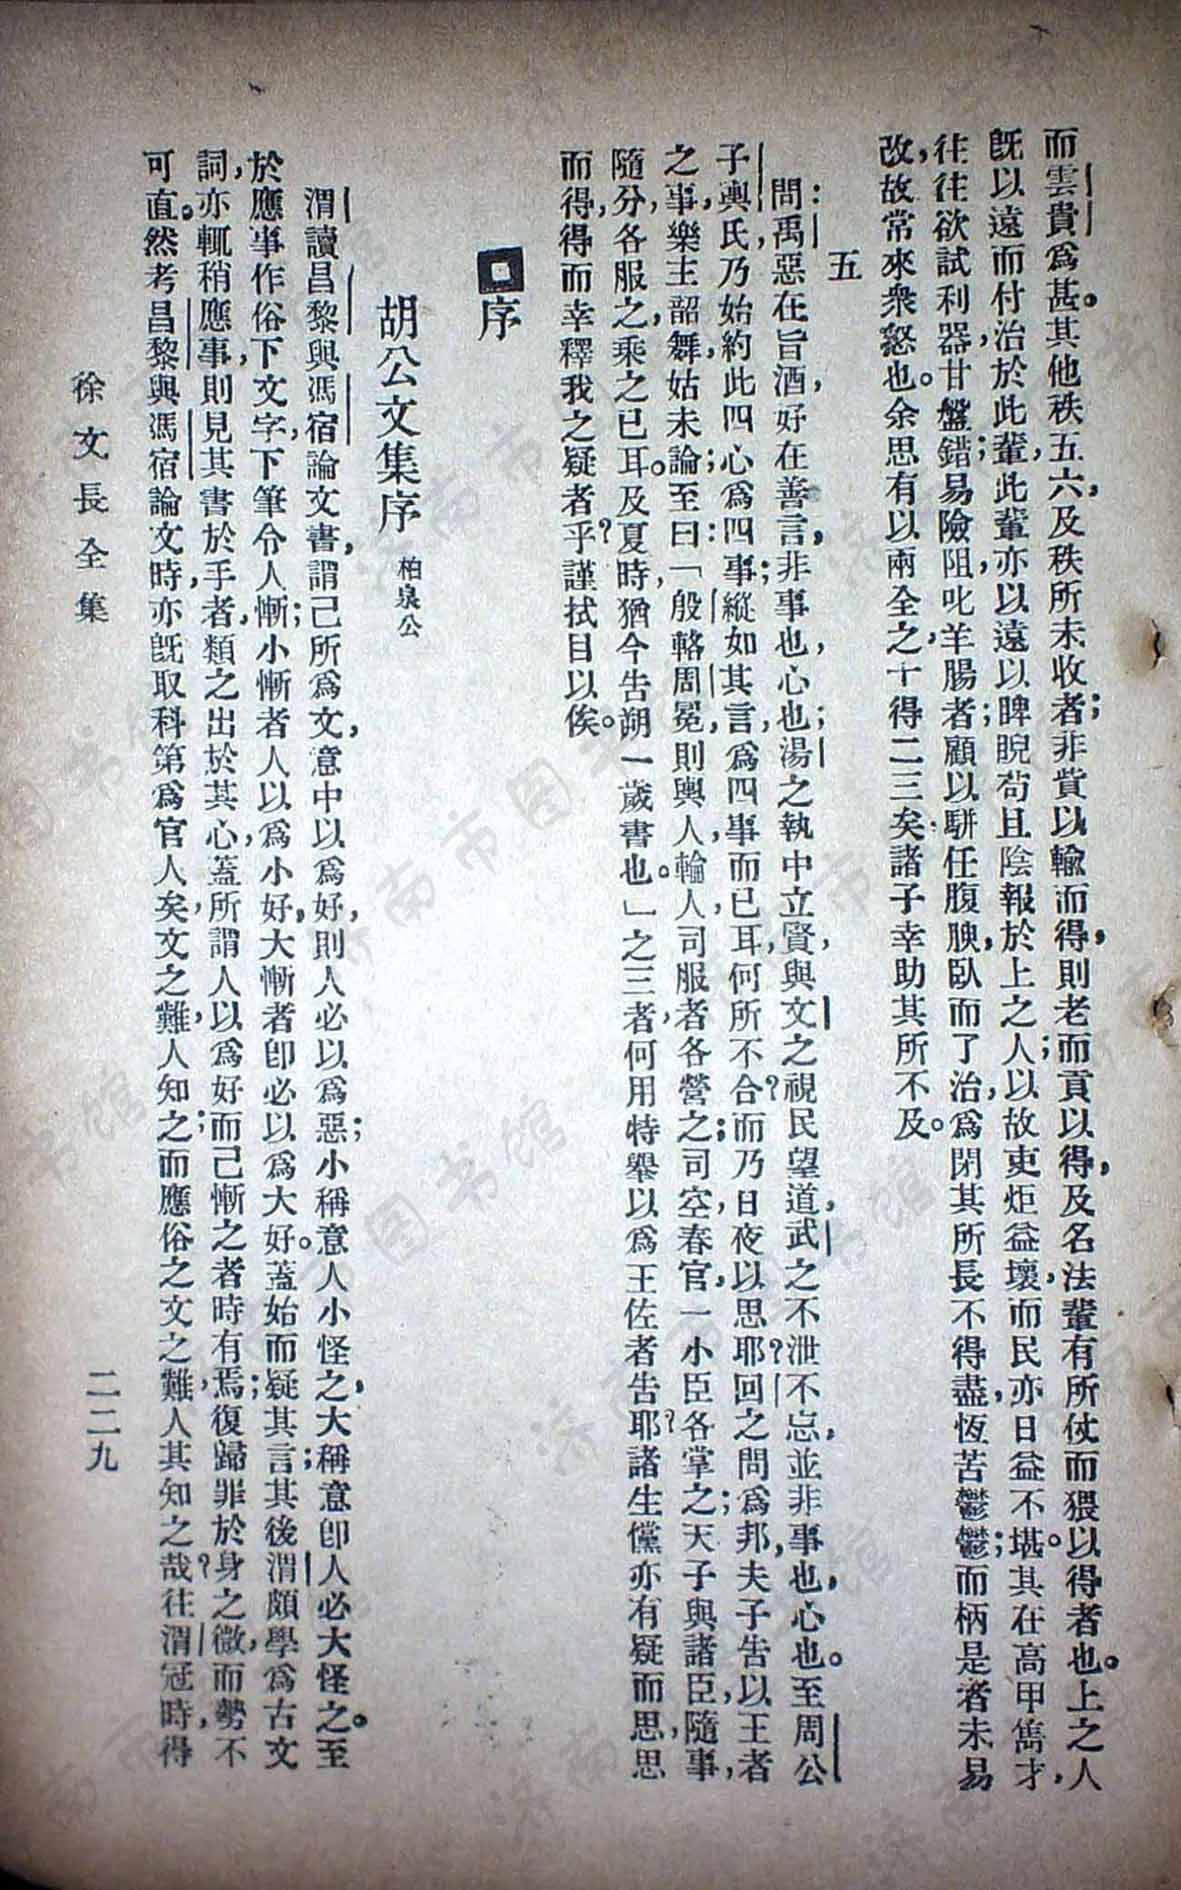 而雲貴爲甚。其他秩五六,及秩所未收者;非貲以輸而得,則老而貢以得,及名法輩有所仗而猥以得者也。上之人
既以遠而付治於此輩,此輩亦以遠以睥睨苟且陰報於上之人;以故吏炬益壞,而民亦日益不堪。其在高甲雋才,
往往欲試利器,甘盤錯;易險阻,叱羊腸者;顧以駢任腹腴,臥而了治,爲閉其所長不得盡,恆苦鬱鬱;而柄是者未易
改,故常來衆怒也。余思有以兩全之,十得二三矣;諸子幸助其所不及。
五
問:禹惡在旨酒,好在善言,非事也,心也;湯之執中立賢,與文之視民望道,武之不泄不忘,並非事也,心也。至周公
子輿氏,乃始約此四心爲四事;縱如其言,爲四事而已耳,何所不合?而乃日夜以思耶?回之問爲邦,夫子告以王者
之事,樂主韶舞,姑未論;至曰:「殷輅周冕,則輿人,輪人,司服者各營之;司空春官,一小臣各掌之;天子與諸臣,隨事,
隨分,各服之,乘之已耳。及夏時,猶今告朔一歲書也。」之三者,何用特舉以爲王佐者告耶?諸生儻亦有疑而思,思
而得,得而幸釋我之疑者乎?謹拭目以俟。
序
胡公文集序 柏泉公
渭讀昌黎與馮宿論文書,謂己所爲文,意中以爲好,則人必以爲惡;小稱意,人小怪之,大稱意,卽人必大怪之。至
於應事作俗下文字,下筆令人慚;小慚者人以爲小好,大慚者卽必以爲大好。蓋始而疑其言;其後渭頗學爲古文
詞,亦輒稍應事,則見其書於手者,類之出於其心,蓋所謂人以爲好而己慚之者時有焉;復歸罪於身之微,而勢不
可直。然考昌黎與馮宿論文時,亦既取科第爲官人矣,文之難,人知之;而應俗之文之難,人其知之哉?往渭冠時,得
徐文長全集
二二九